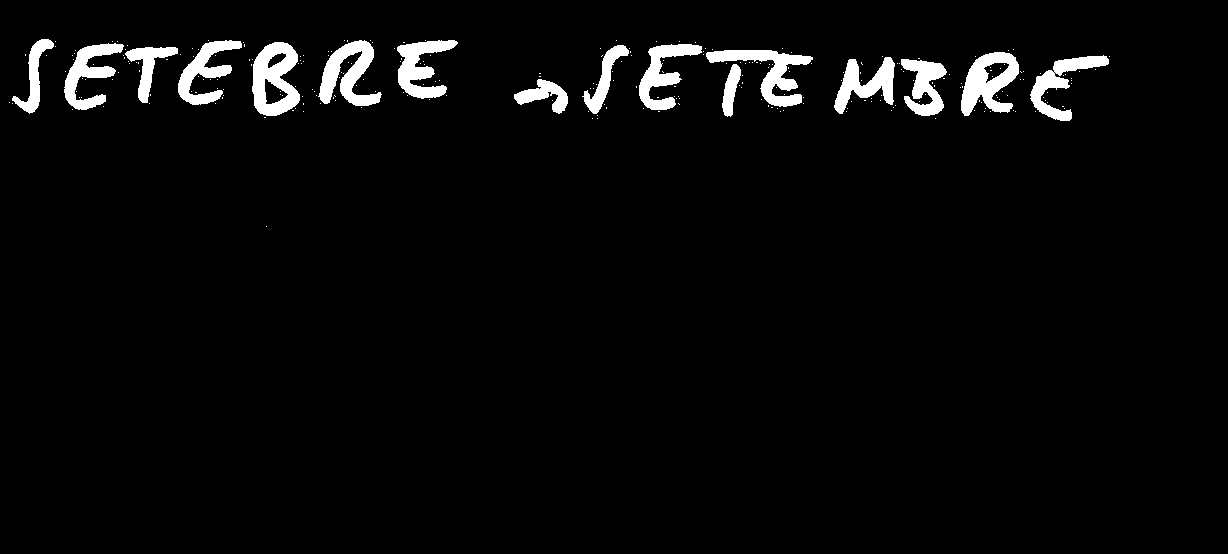 SETEBRE → SETEMBRE